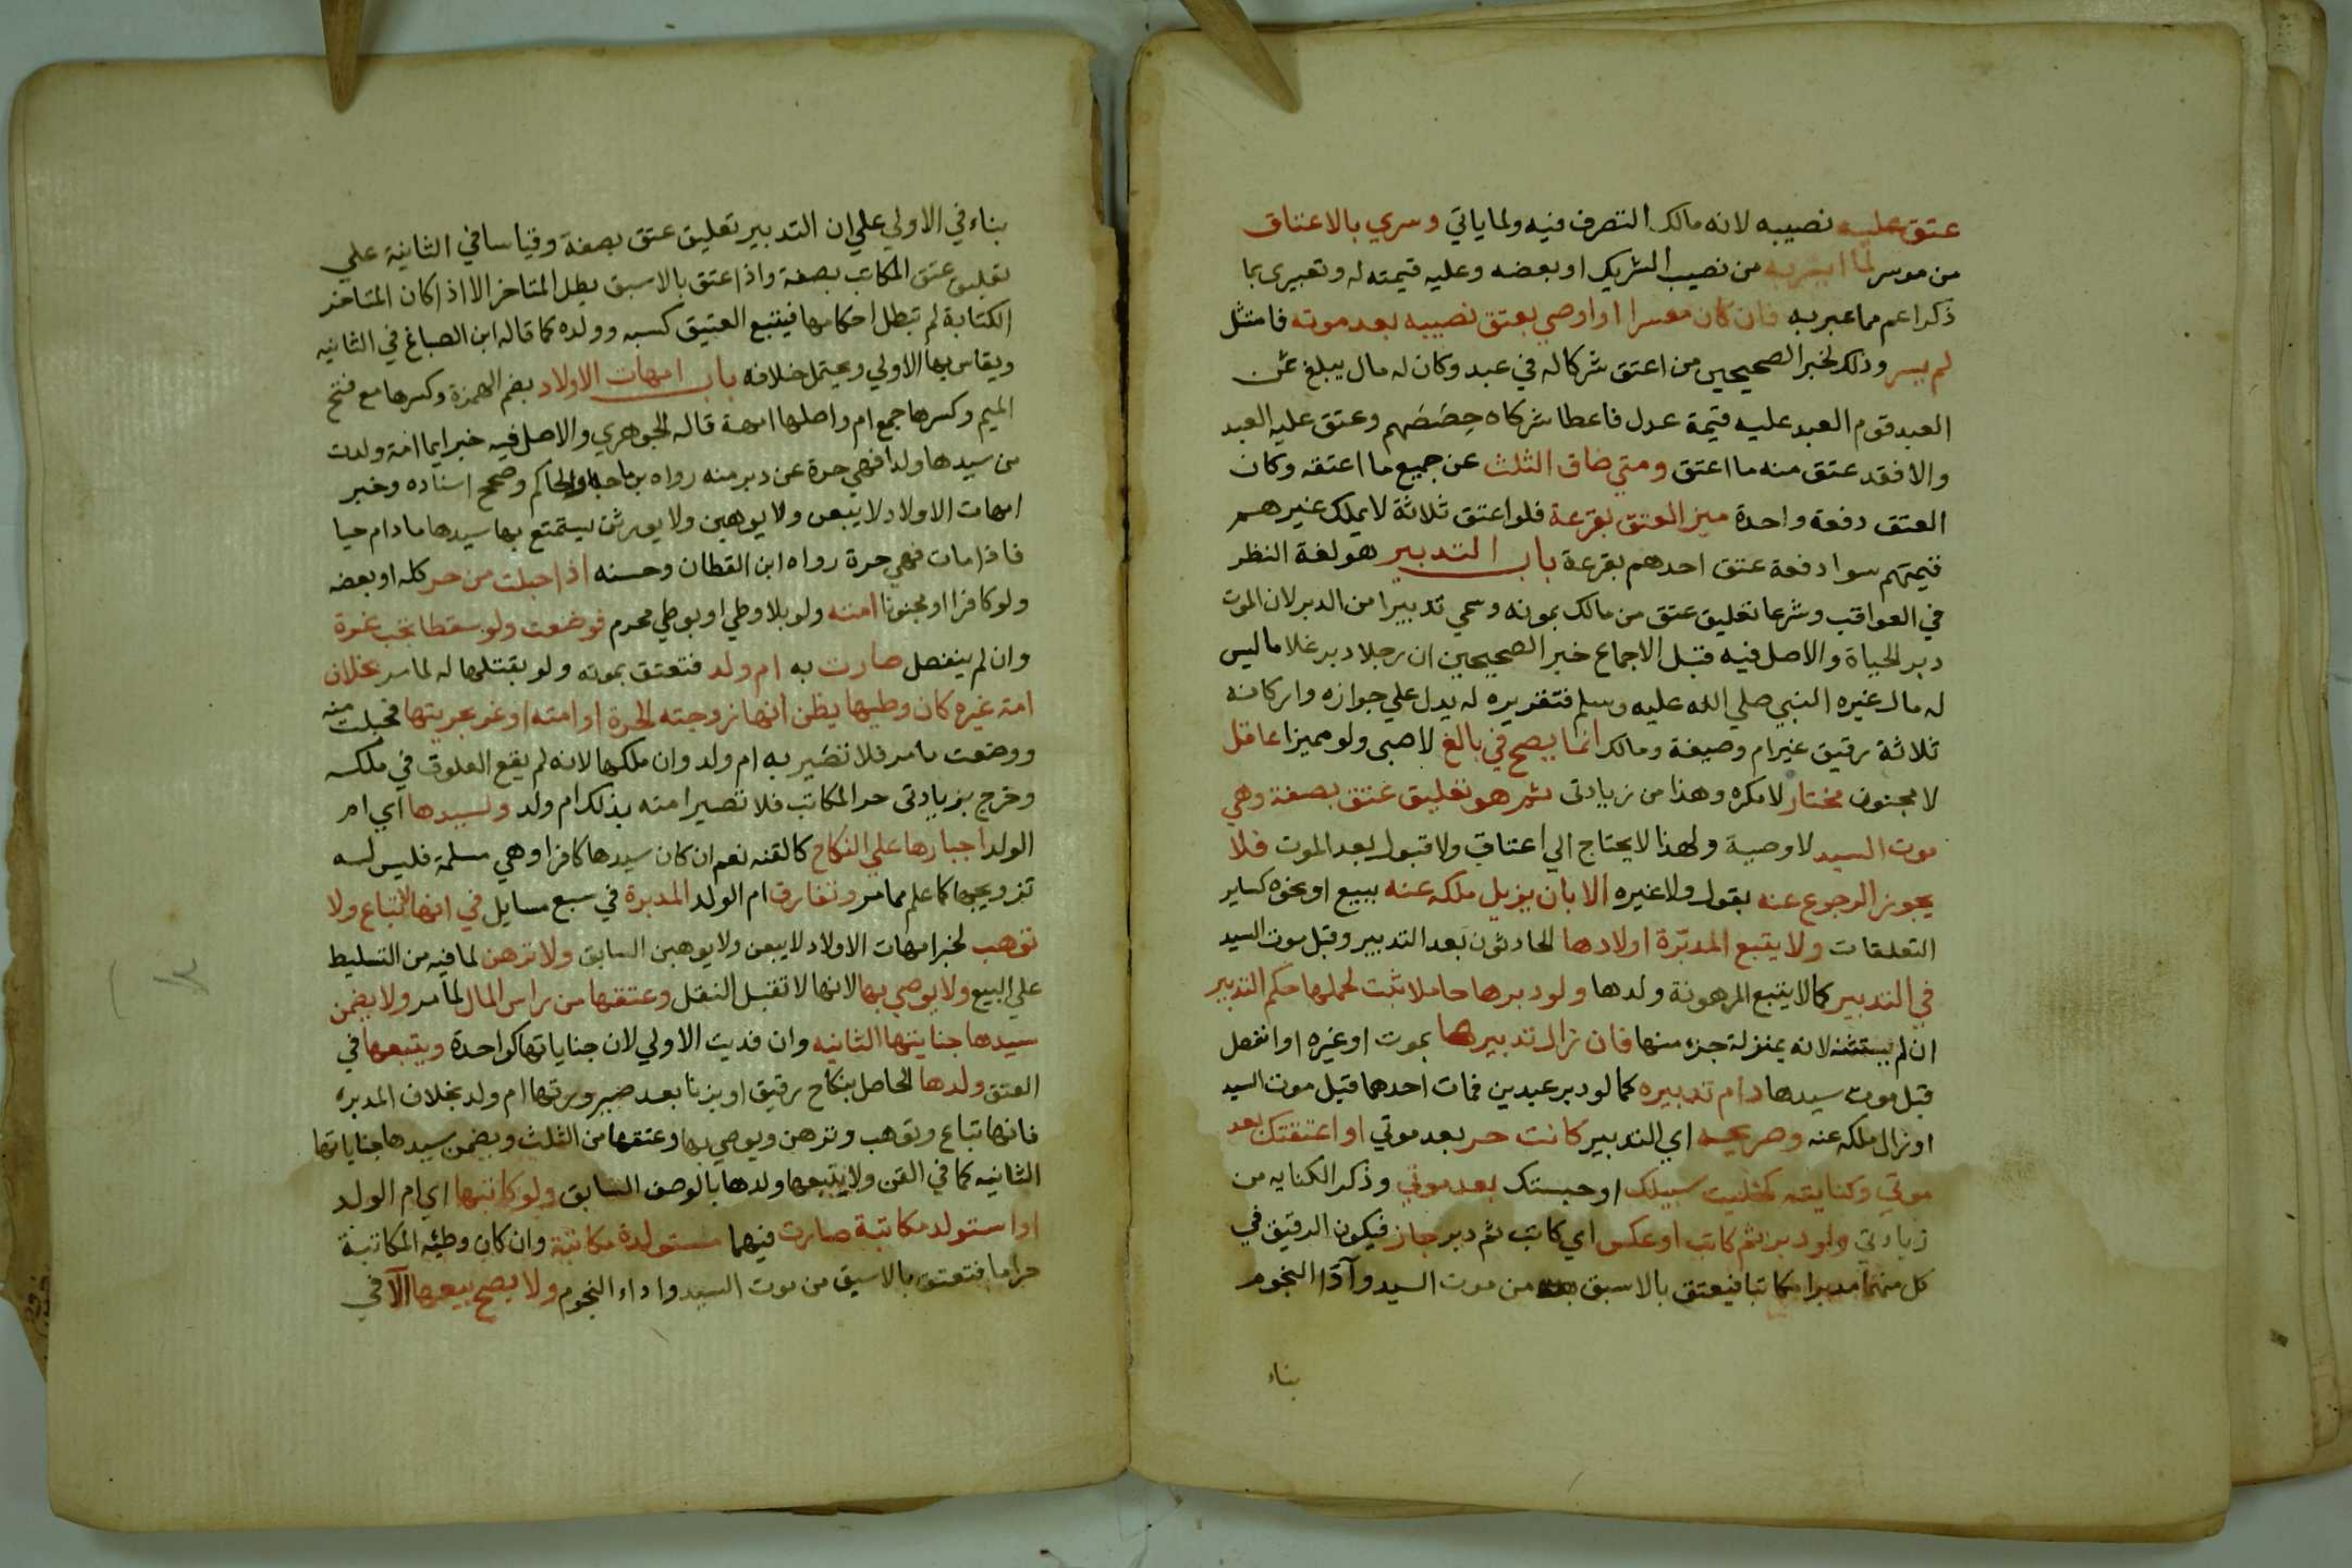 عتق عليه نصيبه لانه مالك التصرف فيه ولما ياتي وسري بالاعتاق
من موسر لما ايسر به من نصيب الشريك او بعضه وعليه قيمته له وتعبيري بما
ذكر اعم مما عبر به فان كان معسرا او اوصي بعتق نصيبه بعد موته فامتثل
لم يسر وذلك لخبر الصحيحين من اعتق شركا له في عبد وكان له مال يبلغ ثمن
العبد قوم العبد عليه قيمة عدل فاعطا شركاه حصصهم وعتق عليه العبد
والا فقد عتق منه ما اعتق ومتي ضاق الثلث عن جميع ما اعتقه وكان
العتق دفعة واحدة ميز العتق بقرعة فلو اعتق ثلاثة لا يملك غيرهم
قيمتهم سوا دفعة عتق احدهم بقرعة باب التدبير هو لغة النظر
في العواقب وشرعا تعليق عتق من مالك بموته وسمي تدبيرا من الدبر لان الموت
دبر الحياة والاصل فيه قبل الاجماع خبر الصحيحين ان رجلا دبر غلاما ليس
له مال غيره النبي صلي الله عليه وسلم فتقريره له يدل علي جوازه واركانه
ثلاثة رقيق غير ام وصيغة ومالك انما يصح في بالغ لا صبي ولو مميزا عاقل
لا مجنون مختار لا مكره وهذا من زيادتي ثم هو تعليق عتق بصفة وهي
موت السيد لا وصية ولهذا لا يحتاج الي اعتاق ولا قبول بعد الموت فلا
يجوز الرجوع عنه بقول ولا غيره الا بان يزيل ملكه عنه ببيع او نحوه كساير
التعلقات ولا يتبع المدبّرة اولادها الحادثون بعد التدبير وقبل موت السيد
في التدبير كما لا يتبع المرهونة ولدها ولو دبرها حاملا ثبت لحملها حكم التدبير
ان لم يستثنه لانه بمنزلة جزء منها فان زال تدبيرها بموت او غيره او انفصل
قبل موت سيدها دام تدبيره كما لو دبر عبدين فمات احدهما قبل موت السيد
او زال ملكه عنه وصريحه اي التدبير كانت حر بعد موتي او اعتقتك بعد
موتي وكنايته كخليت سبيلك او حبستك بعد موتي وذكر الكنايه من
زيادتي ولو دبر ثم كاتب او عكس اي كاتب ثم دبر جاز فيكون الرقيق في
كل منهما مدبرا مكاتبا فيعتق بالاسبق من موت السيد وآدا النجوم
بناء
بناء في الاولي علي ان التدبير تعليق عتق بصفة وقياسا في الثانية علي
تعليق عتق المكاتب بصفة واذا عتق بالاسبق بطل المتاخر الا اذا كان المتاخر
الكتابة لم تبطل احكامها فيتبع العتيق كسبه وولده كما قاله ابن الصباغ في الثانيه
ويقاس بها الاولي ويحتمل خلافه باب امهات الاولاد بضم الهمزة وكسرها مع فتح
الميم وكسرها جمع ام واصلها امهة قاله الجوهري والاصل فيه خبر ايما امة ولدت
من سيدها ولدا فهي حرة عن دبر منه رواه بن ماجه والحاكم وصحح اسناده وخبر
امهات الاولاد لا يبعن ولا يوهبن ولا يورثن يستمتع بها سيدها ما دام حيا
فاذا مات فهي حرة رواه ابن القطان وحسنه اذا حبلت من حر كله او بعضه
ولو كافرا او مجنونا امته ولو بلا وطي او بوطي محرم فوضعت ولو سقطا تجب غرة
وان لم ينفصل صارت به ام ولد فتعتق بموته ولو بقتلها له لما مر بخلاف
امة غيره كان وطيها يظن انها زوجته الحرة او امته او غر بحريتها فحبلت منه
ووضعت ما مر فلا تصير به ام ولد وان ملكها لانه لم يقع العلوق في ملكه
وخرج بزيادتي حر المكاتب فلا تصير امته بذلك ام ولد ولسيدها اي ام
الولد اجبارها علي النكاح كالقنه نعم ان كان سيدها كافرا وهي مسلمة فليس له
تزويجها كما علم مما مر وتفارق ام الولد المدبرة في سبع مسايل في انها لا تباع ولا
توهب لخبر امهات الاولاد لا يبعن ولا يوهبن السابق ولا ترهن لما فيه من التسليط
علي البيع ولا يوصي بها لانها لا تقبل النقل وعتقها من راس المال لما مر ولا يضمن
سيدها جنايتها الثانيه وان فديت الاولي لان جناياتها كواحدة ويتبعها في
العتق ولدها الحاصل بنكاح رقيق او بزنا بعد صيرورتها ام ولد بخلاف المدبره
فانها تباع وتوهب وترهن ويوصي بها وعتقها من الثلث ويضمن سيدها جناياتها
الثانيه كما في القن ولا يتبعها ولدها بالوصف السابق ولو كاتبها اي ام الولد
او استولد مكاتبة صارت فيهما مستولدة مكاتبة وان كان وطئه المكاتبة
حراما فتعتق بالاسبق من موت السيد واداء النجوم ولا يصح بيعها الا في